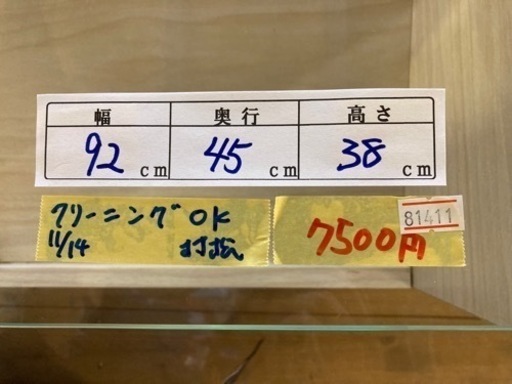 幅 奥行 高さ
92 cm 45 cm 38 cm
クリーニングOK
11/14
7500円
81411